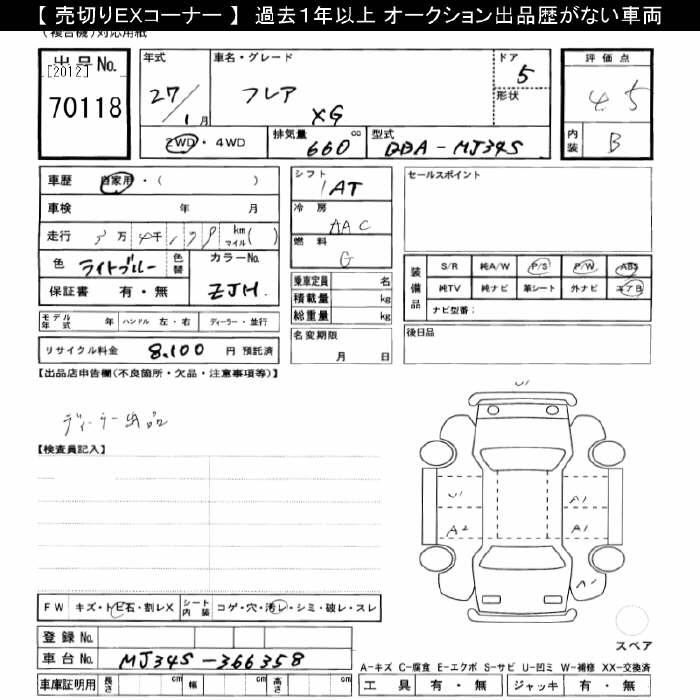 【 売切りEXコーナー 】 過去１年以上 オークション出品歴がない車両
(複合機)対応用紙
出品No.
[2012]
70118
年式
27/1月
車名・グレード
フレア
XG
ドア
5
形状
評価点
4.5
内装
B
2WD・4WD
排気量
660
cc
型式
DBA-MJ34S
車歴
自家用・( )
車検 年 月
走行
万
千
km
マイル( )
色
ライトブルー
色替
カラーNo.
ZJH
保証書 有・無
シフト
1AT
冷房
AAC
燃料
G
乗車定員 名
積載量 kg
総重量 kg
名変期限
月 日
セールスポイント
装備品
S/R 純A/W P/S P/W ABS
純TV 純ナビ 革シート 外ナビ エアB
ナビ型番:
後日品
モデル年式 年 ハンドル 左・右 ディーラー・並行
リサイクル料金 8,100 円 預託済
【出品店申告欄(不良箇所・欠品・注意事項等)】
ディーラー出品
【検査員記入】
U1
U1
A1
A2
A1
A1
FW キズ・トビ石・割レX シート内装 コゲ・穴・汚レ・シミ・破レ・スレ
登録No.
車台No. MJ34S-366358
車庫証明用 長さ cm 幅 cm 高さ cm
スペア
A-キズ C-腐食 E-エクボ S-サビ U-凹ミ W-補修 XX-交換済
工具 有・無 ジャッキ 有・無